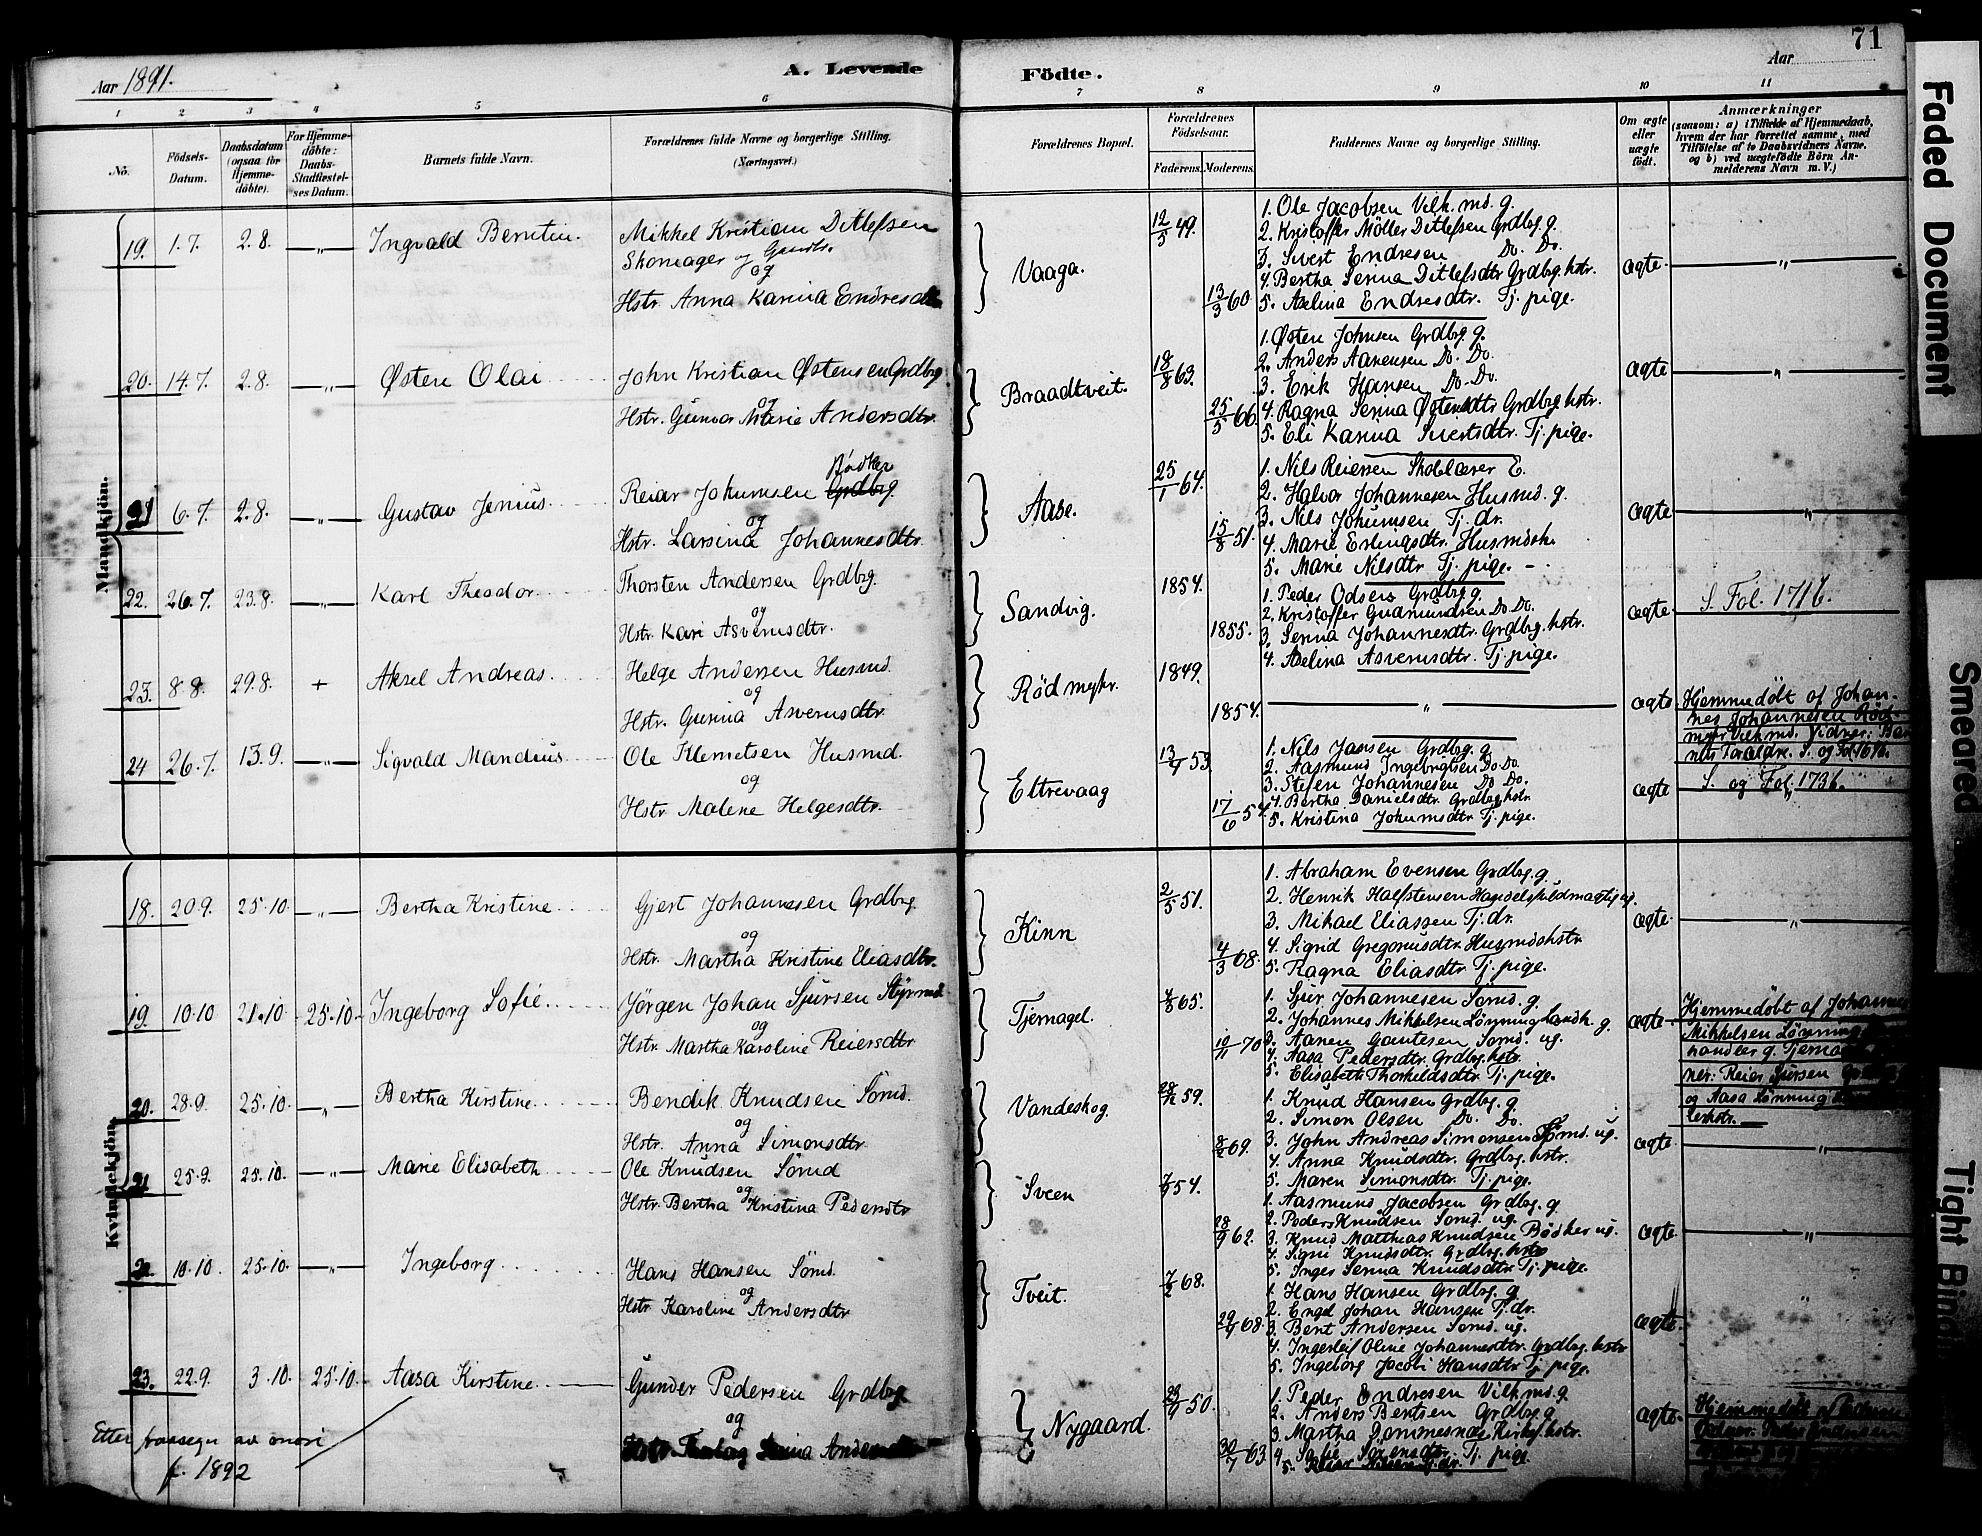 71
Aar 1891.
A. Levende Födte.
Aar
1 2 3 4 5 6 7 8 9 10 11
No.
Födsels-Datum.
Daabsdatum (ogsaa for Hjemme-döbte).
For Hjemme-döbte: Daabs-Stadfæstel-ses Datum.
Barnets fulde Navn.
Forældrenes fulde Navne og borgerlige Stilling. (Næringsvei.)
Forældrenes Bopæl.
Forældrenes Födselsaar.
Faderens. Moderens.
Faddernes Navne og borgerlige Stilling.
Om ægte eller uægte födt.
Anmærkninger
(saasom: a) i Tilfælde af Hjemmedaab,
hvem der har forrettet samme, med
Tilföielse af to Daabsvidners Navne,
og b) ved uægtefödte Börn An-
melderens Navn m. V.)
Mandkjön.
19. 1.7. 2.8. —„— Ingvald Berntin.
Mikkel Kristian Ditlefsen
Skomager og Gmbr.
og
Hstr. Anna Karina Endresdtr
Vaaga.
12/5 49.
13/3 60
1. Ole Jacobsen Vilk. md. g.
2. Kristoffer Möller Ditlefsen Grdbg. g.
3. Sivert Endresen Do. Do.
4. Bertha Serina Ditlefsdtr Grdbrg. hstr.
5. Aselina Endresdtr. Tj. pige.
ægte. „
20. 14.7. 2.8. —„— Østen Olai
John Kristian Østensen Grdbrg.
og
Hstr. Gunvor Marie Andersdtr.
Braadtveit.
18/8 63.
25/5 66
1. Østen Johnsen Grdbrg. g.
2. Anders Aanensen Do. Do.
3. Erik Hansen Do. Do.
4. Ragna Serina Østensdtr Grdbrg. hstr.
5. Eli Karina Sivertsdtr. Tj. pige.
ægte „
21 6.7. 2.8. —„— Gustav Jenius.
Bödker
Reiar Johannsen Grdbrg
og
Hstr. Larsina Johannesdtr.
Aase.
25/1 64.
15/8 51.
1. Nils Reiersen Skolelærer E.
2. Halvor Johannesen Husmd. g.
3. Nils Johannsen Tj. dr.
4. Marie Erlingsdtr. Husmdsh.
5. Marie Nilsdtr Tj. pige.
ægte „
22. 26.7. 23.8. —„— Karl Theodor
Thorsten Andersen Grdbrg.
og
Hstr. Kari Asverusdtr.
Sandvig.
1854.
1855.
1. Peder Odsen Grdbrg. g.
2. Kristoffer Gudmundsen Do Do.
3. Serina Johannesdtr. Grdbrg. hstr.
4. Aselina Asverusdtr. Tj. pige.
ægte. S. Fol. 171 6.
23. 8.8. 29.8. + Aksel Andreas
Helge Andersen Husmd.
og
Hstr. Gurina Asverusdtr.
Rödmyhr.
1849.
1854.
„
ægte
Hjemmedøbt af Johan-
nes Johannesen Röd-
myr Vilk. md. Vidner: Bar-
nets Forældre. S. og Fol. 161 6.
24 26.7. 13.9. —„— Sigvald Mandius
Ole Klemetsen Husmd.
og
Hstr. Malene Helgesdtr.
Eltrevaag
13/9 53
17/6 54.
1. Nils Jansen Grdbg. g.
2. Aasmund Ingebrigtsen Do Do.
3. Steffen Johannesen Do Do.
4. Bertha Danielsdtr. Grdbrg. hstr
5. Kristina Johannsdtr. Tj. pige.
ægte S. og Fol. 173 6.
Kvindekjön.
18. 20.9. 25.10. —„— Bertha Kristine
Gjert Johannesen Grdbrg.
og
Hstr. Martha Kristine Eliasdtr.
Kinn
2/5 51.
4/3 68.
1. Abraham Evensen Grdbrg. g.
2. Henrik Halfstensen Handelsfuldmægtig ug.
3. Mikael Eliassen Tj. dr.
4. Sigrid Gregoriusdtr. Husmdshstr.
5. Ragna Eliasdtr. Tj. pige.
ægte „
19. 10.10 21.10 25.10. Ingeborg Sofie
Jörgen Johan Sjursen Styrmd.
og
Hstr. Martha Karoline Reiersdtr
Tjernagel.
65.
10/11 70
1. Sjur Johannesen Sömd. g.
2. Johannes Mikkelsen Lönning Landh. g.
3. Aanen Gautesen Sömd. ug.
4. Aasa Pedersdtr. Grdbg. hstr.
5. Elisabeth Thorkildsdtr Tj. pige.
ægte.
Hjemmedøbt af Johannes
Mikkelsen Lönning
handler g. Tjerna
ner: Reier Sjursen
og Aasa Lönning
lerhstr.
20. 28.9. 25.10. —„— Bertha Kirstine
Bendik Knudsen Sömd.
og
Hstr. Anna Simonsdtr
Vandeskog.
59.
69.
1. Knud Hansen Grdbrg. g.
2. Simon Olsen Do. Do.
3. John Andreas Simonsen Sömd. ug.
4. Anna Knudsdtr. Grdbrg. hstr.
5. Maren Simonsdtr. Tj. pige.
ægte „
21 25.9. 25.10. —„— Marie Elisabeth
Ole Knudsen Sömd
og
Hstr. Bertha Kristina Pedersdtr
Sveen
7/9 54.
28/9 62.
1. Aasmund Jacobsen Grdbrg. g.
2. Peder Knudsen Sömd. ug.
3. Knud Matthias Knudsen Bödker ug.
4. Signi Knudsdtr. Grdbg. hstr
5. Inger Serina Knudsdtr Tj. pige.
ægte „
22 10.10. 25.10. —„— Ingeborg
Hans Hansen Sömd.
og
Hstr. Karoline Andersdtr
Tveit.
7/2 68.
68.
1. Hans Hansen Grdbrg. g.
2. Engel Johan Hansen Tj. dr.
3. Bent Andersen Sömd. ug.
4. Ingerleif Oline Johannesdtr. Grdbrg. hstr
5. Ingeborg Jacobi Hansdtr Tj. pige.
ægte. „
23. 22.9. 3.10. 25.10. Aasa Kirstine
Gunder Pedersen Grdbrg.
og
Hstr.
Nygaard.
50.
30/7 63.
1. Peder Endresen Vilk. md. g.
2. Anders Bentsen Grdbrg. g.
3. Martha
4. Sofie Sörensdtr. Tj. pige.
5.
ægte.
Hjemmedøbt af
Etter fraasegn av mori
f. 1892
Faded Document
Smeared
Tight Bindi